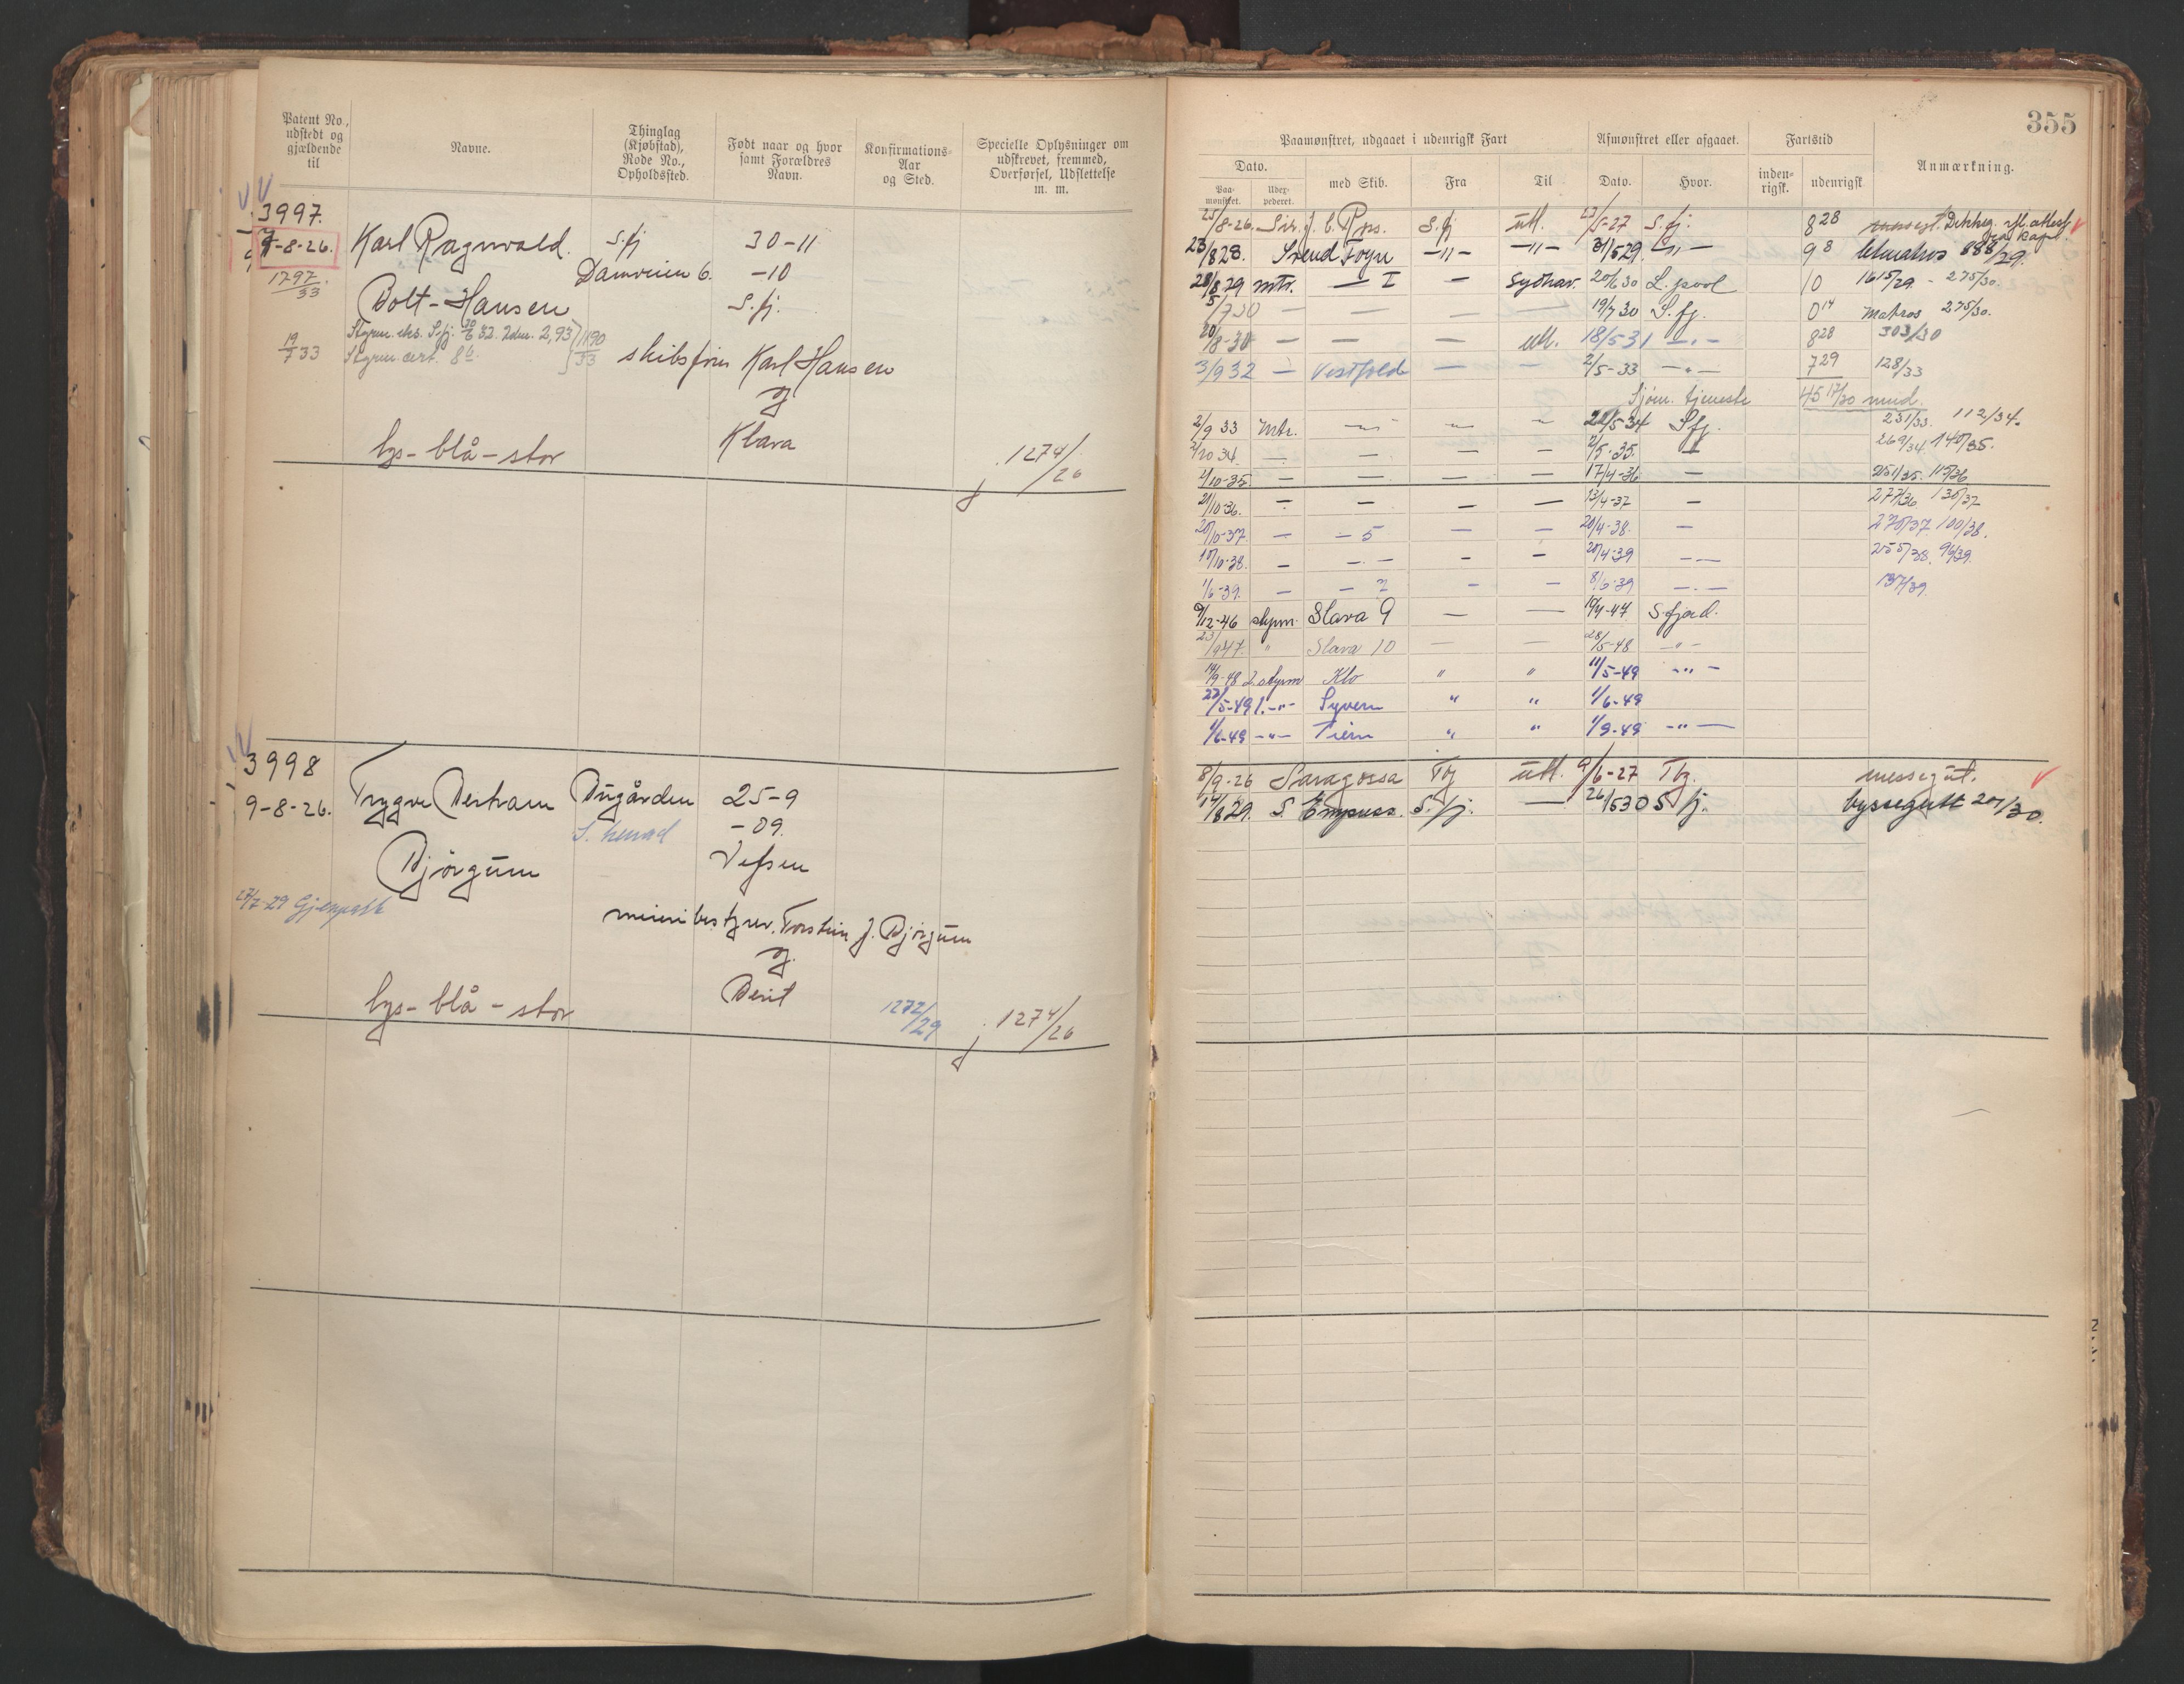 Patent No.,
udstedt og
gjældende
til
Navne.
Thinglag
(Kjøbstad),
Rode No.,
Opholdssted.
Født naar og hvor
samt Forældres
Navn.
Konfirmations-
Aar
og Sted.
Specielle Oplysninger om
udskrevet, fremmed,
Overførsel, Udslettelse
m. m.
3997.
9-8-26.
1797/33
Karl Ragnvald
Bolt-Hansen
S.fj
Damveien 6.
30-11
-10
S.fj.
19/7 33
skibsfører Karl Hansen
og
Klara
lys - blå - stor
j. 1274/26
3998
9-8-26.
Trygve Bertram
Bjørgum
Bugården
S. herred
25-9
-09.
Vefsen
Torstein J. Bjørgum
og
Berit
lys - blå - stor
1272/29
j. 1274/26
355
Paamønstret, udgaaet i udenrigsk Fart
Afmønstret eller afgaaet.
Fartstid
Anmærkning.
Dato.
med Skib.
Fra
Til
Dato.
Hvor.
inden-
rigsk.
udenrigsk
Paa-
mønstret.
Udex-
pederet.
25/8-26. Sir. J. C. Ross. S.fj utl. 5-27 S.fj. 8 28
23/8 28. Svend Foyn -"- -"- 31/5 29. -"- 9 8 888/29.
28/8 29 mtr. — I — Sydhav. 20/6 30 L.pool 10 1615/29 - 275/30.
5/7 30 — — — — 19/7 30 S.fj. 0 14 Matros 275/30.
20/8-30 — — — utl. 18/5 31 -"- 8 28 303/30
3/9 32 — Vestfold — — 2/5-33 -"- 7 29 128/33
Sjøm. tjeneste 45 17/30 mnd.
2/9 33 mtr. — — — 22/5-34 Sfj. 231/33. 112/34.
2/10 34. — — — — 2/5-35. — 269/34 140/35.
4/10-35. — — — — 17/4-36 — 251/35. 115/36
2/10-36. — — — — 13/4-37 — 277/36 130/37
20/10-37. — — 5 — — 20/4-38. — 270/37 100/38.
10/10-38. — — — — 20/4-39 — 255/38. 96/39.
1/6-39. — — — — 8/6-39 — 137/39.
9/12-46 styrm. Slava 9 — — 19/4-47 S.fjord.
23/9 47. " Slava 10 — — 28/5-48 -"-
14/9-48 2. styrm Klo " " 11/5-49 -"-
22/5-49 1. -"- Syvern " " 1/6-49
1/6-49 -"- Tiern " " 1/9-49 -"-
8/9-26 Saragossa Tbg utl. 9/6-27 Tbg. messegut.
14/8 29. S. Empress. S.fj. — 26/5 30 S fj. byssegutt 20/30.